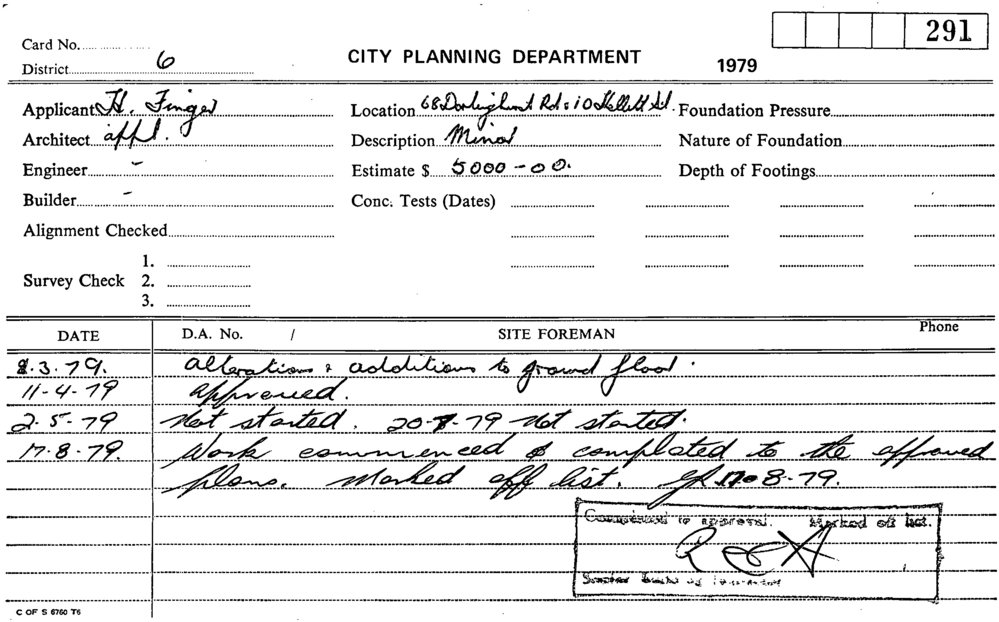 291
Card No.
CITY PLANNING DEPARTMENT
1979
District 6
Applicant H. Finger
Location 68 Darlinghurst Rd & 10 Kellett St.
Foundation Pressure
Architect appl.
Description Minor
Nature of Foundation
Engineer -
Estimate $ 5000-00.
Depth of Footings
Builder -
Conc. Tests (Dates)
Alignment Checked
1.
Survey Check 2.
3.
DATE D.A. No. / SITE FOREMAN Phone
8.3.79. Alterations & additions to ground floor.
11-4-79 Approved.
2-5-79 Not started. 20-7-79 Not started.
17.8.79. Work commenced & completed to the approved
plans. Marked off list. 17-8-79.
Completed to approval. Marked off list.
Senior
C OF S 6760 T6